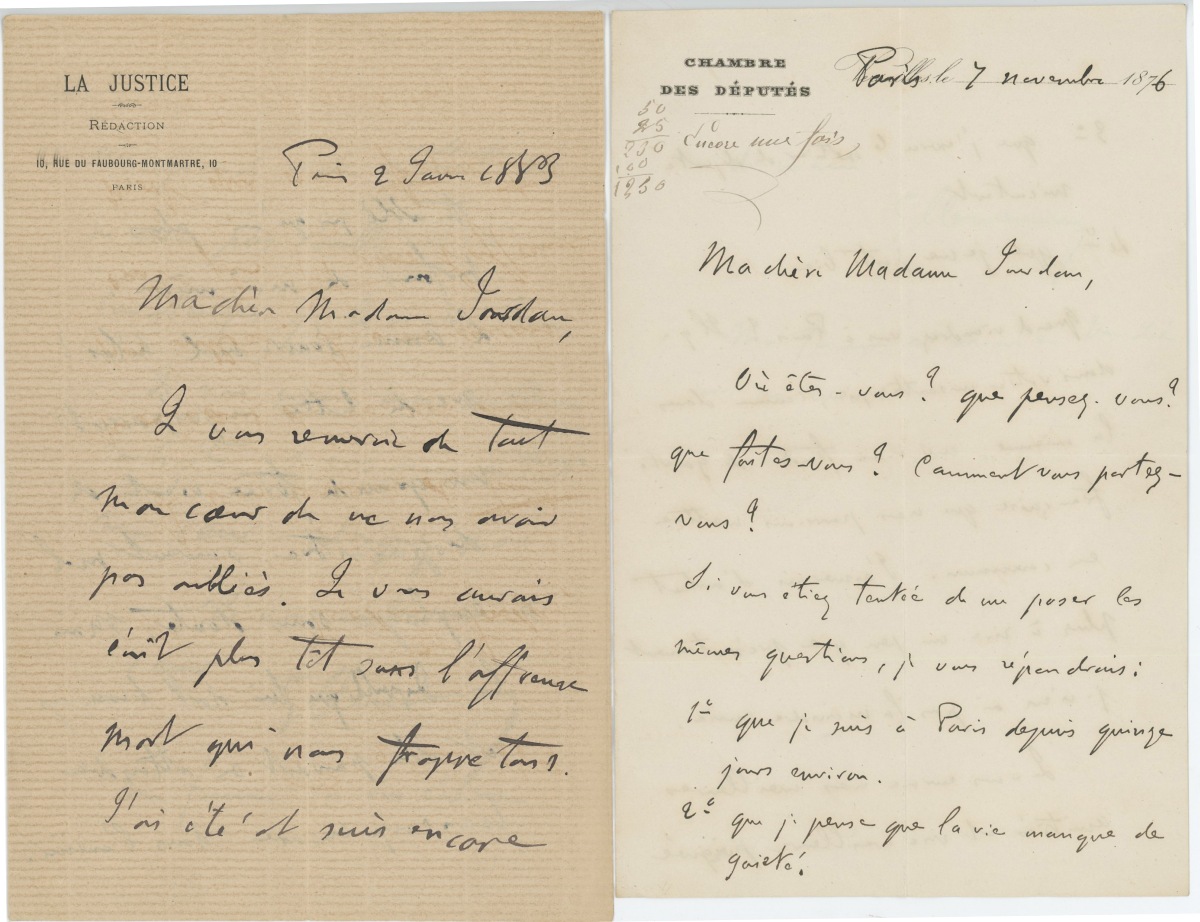 LA JUSTICE
RÉDACTION
10, RUE DU FAUBOURG-MONTMARTRE, 10
PARIS
Paris 2 Janv 1883
Ma chère Madame Jourdan,
Je vous remercie de tout
mon cœur de ne nous avoir
pas oubliés. Je vous aurais
écrit plus tôt sans l'affreuse
mort qui nous frappe tous.
J'ai été et suis encore
CHAMBRE
DES DÉPUTÉS
Paris le 7 novembre 1876
50
25
250
100
1250
1º
Encore une fois,
Ma chère Madame Jourdan,
Où êtes-vous? que pensez-vous?
que faites-vous? Comment vous portez-
vous?
Si vous étiez tentée de me poser les
mêmes questions, je vous répondrais:
1º que je suis à Paris depuis quinze
jours environ.
2º que je pense que la vie manque de
gaieté!